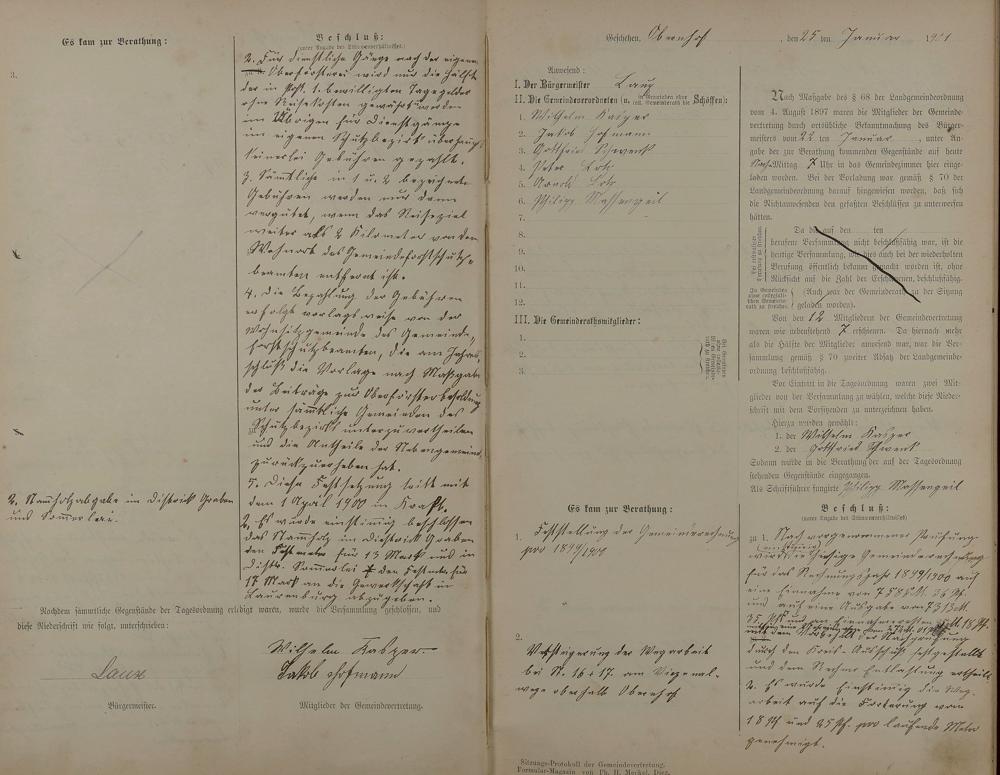 Es kam zur Berathung:
3.
2. Stammholzabgabe im Distrikt Graben
und Sommerlei.
Beschluß:
(unter Angabe des Stimmenverhältnisses.)
2. Für dienstliche Gänge nach der eigenen
Oberförsterei wird nur die Hälfte
der in pos. 1. bewilligten Tagegelder
ohne Reisekosten gewährt werden
im Übrigen für Dienstgänge
im eigenen Schutzbezirk überhaupt
keinerlei Gebühren gezahlt.
3. Sämtliche in 1 u. 2 bezeichnete
Gebühren werden nur dann
vergütet, wenn das Reiseziel
weiter als 2 Kilometer von dem
Wohnort des Gemeindeforstschutz-
beamten entfernt ist.
4. Die Bezahlung der Gebühren
erfolgt vorlagsweise von der
Wohnsitzgemeinde des Gemeinde-
forstschutzbeamten, die am Jahres-
schluß die Vorlage nach Maßgabe
der Beiträge zur Oberförsterbesoldung
unter sämtliche Gemeinden des
Schutzbezirks unterzuvertheilen
und die Antheile der Nebengemeinden
zurückzuerheben hat.
5. Diese Festsetzung tritt mit
dem 1 April 1900 in Kraft.
2. Es wurde einstimig beschlossen
das Stammholz im Distrikt Graben
den Festmeter für 13 Mark und in
Distr. Sommerlei den Festmeter für
17 Mark an die Gewerkschaft in
Laurenburg abzugeben.
Nachdem sämmtliche Gegenstände der Tagesordnung erledigt waren, wurde die Versammlung geschlossen, und
diese Niederschrift wie folgt, unterschrieben:
Wilhelm Kasper
Jakob Hofmann
Bürgermeister.
Mitglieder der Gemeindevertretung.
Geschehen, Obernhof, den 25 ten Januar 1901
Anwesend:
I. Der Bürgermeister
II. Die Gemeindeverordneten (u. in Gemeinden ohne coll. Gemeinderath die Schöffen):
1. Wilhelm Kasper
2. Jakob Hofmann
3. Gottfried Schwenk
4. Peter
5.
6. Philipp Massengeil
7.
8.
9.
10.
11.
12.
III. Die Gemeinderathsmitglieder:
1.
2.
3.
Nach Maßgabe des § 68 der Landgemeindeordnung
vom 4. August 1897 waren die Mitglieder der Gemeinde-
vertretung durch ortsübliche Bekanntmachung des Bürger-
meisters vom 22 ten Januar, unter An-
gabe der zur Berathung kommenden Gegenstände auf heute
Nach-Mittag 7 Uhr in das Gemeindezimmer hier einge-
laden worden. Bei der Vorladung war gemäß § 70 der
Landgemeindeordnung darauf hingewiesen worden, daß sich
die Nichtanwesenden den gefaßten Beschlüssen zu unterwerfen
hätten.
Da die auf den ten
berufene Versammlung nicht beschlußfähig war, ist die
heutige Versammlung, wie dies auch bei der wiederholten
Berufung öffentlich bekannt gemacht worden ist, ohne
Rücksicht auf die Zahl der Erschienenen, beschlußfähig.
(Auch war der Gemeinderath zu der Sitzung
geladen worden).
Von den 12 Mitgliedern der Gemeindevertretung
waren wie nebenstehend 7 erschienen. Da hiernach mehr
als die Hälfte der Mitglieder anwesend war, war die Ver-
sammlung gemäß § 70 zweiter Absatz der Landgemeinde-
ordnung beschlußfähig.
Vor Eintritt in die Tagesordnung waren zwei Mit-
glieder von der Versammlung zu wählen, welche diese Nieder-
schrift mit dem Vorsitzenden zu unterzeichnen haben.
Hierzu wurden gewählt:
1. der Wilhelm Kasper
2. der Gottfried Schwenk
Sodann wurde in die Berathung der auf der Tagesordnung
stehenden Gegenstände eingegangen.
Als Schriftführer fungirte Philipp Massengeil
Es kam zur Berathung:
1. Feststellung der Gemeinderechnung
pro 1899/1900
2.
Versteigerung der Wegarbeit
bei N. 16 & 17. am Vizenal-
wege oberhalb Obernhof
Beschluß:
(unter Angabe des Stimmenverhältnisses)
zu 1. Nach vorgenommener Prüfung
wird die hiesige Gemeinderechnung
für das Rechnungsjahr 1899/1900 auf
eine Einnahme von 7585 M. 36 Pf.
und auf eine Ausgabe von 7313 M.
durch den Kreis-Ausschuß festgestellt
und dem Rechner Entlastung ertheilt
2. Es wurde einstimig die Weg-
arbeit auf die Forderung von
18 Pf und 25 Pf. pro laufende Meter
genehmigt.
Sitzungs-Protokoll der Gemeindevertretung.
Formular-Magazin von Ph. H. Meckel, Diez.